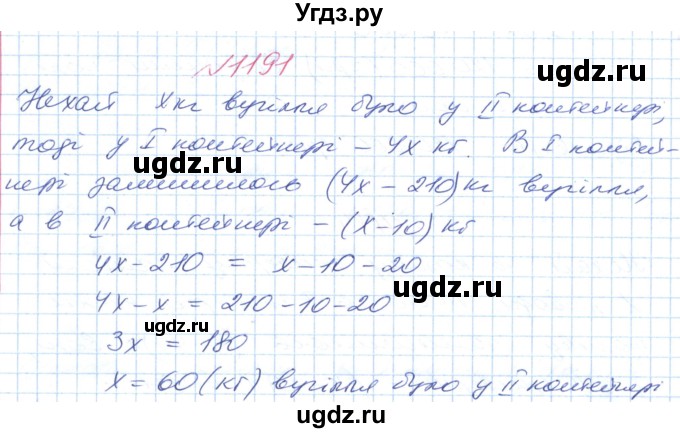 Угдз.ру
№1191
ugdz.ru
Нехай x кг вугілля було у II контейнері,
тоді у I контейнері – 4x кг. В I контей-
ugdz.ru
ugdz.ru
нері залишилось (4x – 210) кг вугілля,
а в II контейнері – (x – 10) кг
ugdz.ru
4x – 210 = x – 10 – 20
ugdz.ru
4x – x = 210 – 10 – 20
ugdz.ru
3x = 180
ugdz.ru
x = 60 (кг) вугілля було у II контейнері
ugdz.ru